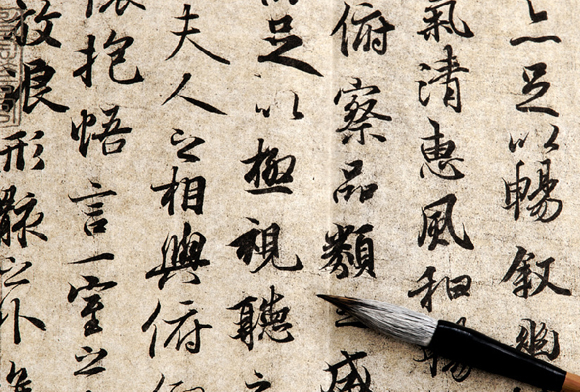 亦足以暢叙幽
氣清惠風和暢
俯察品類之盛
足以極視聽之
夫人之相與俯
抱悟言一室之
放浪形骸之外